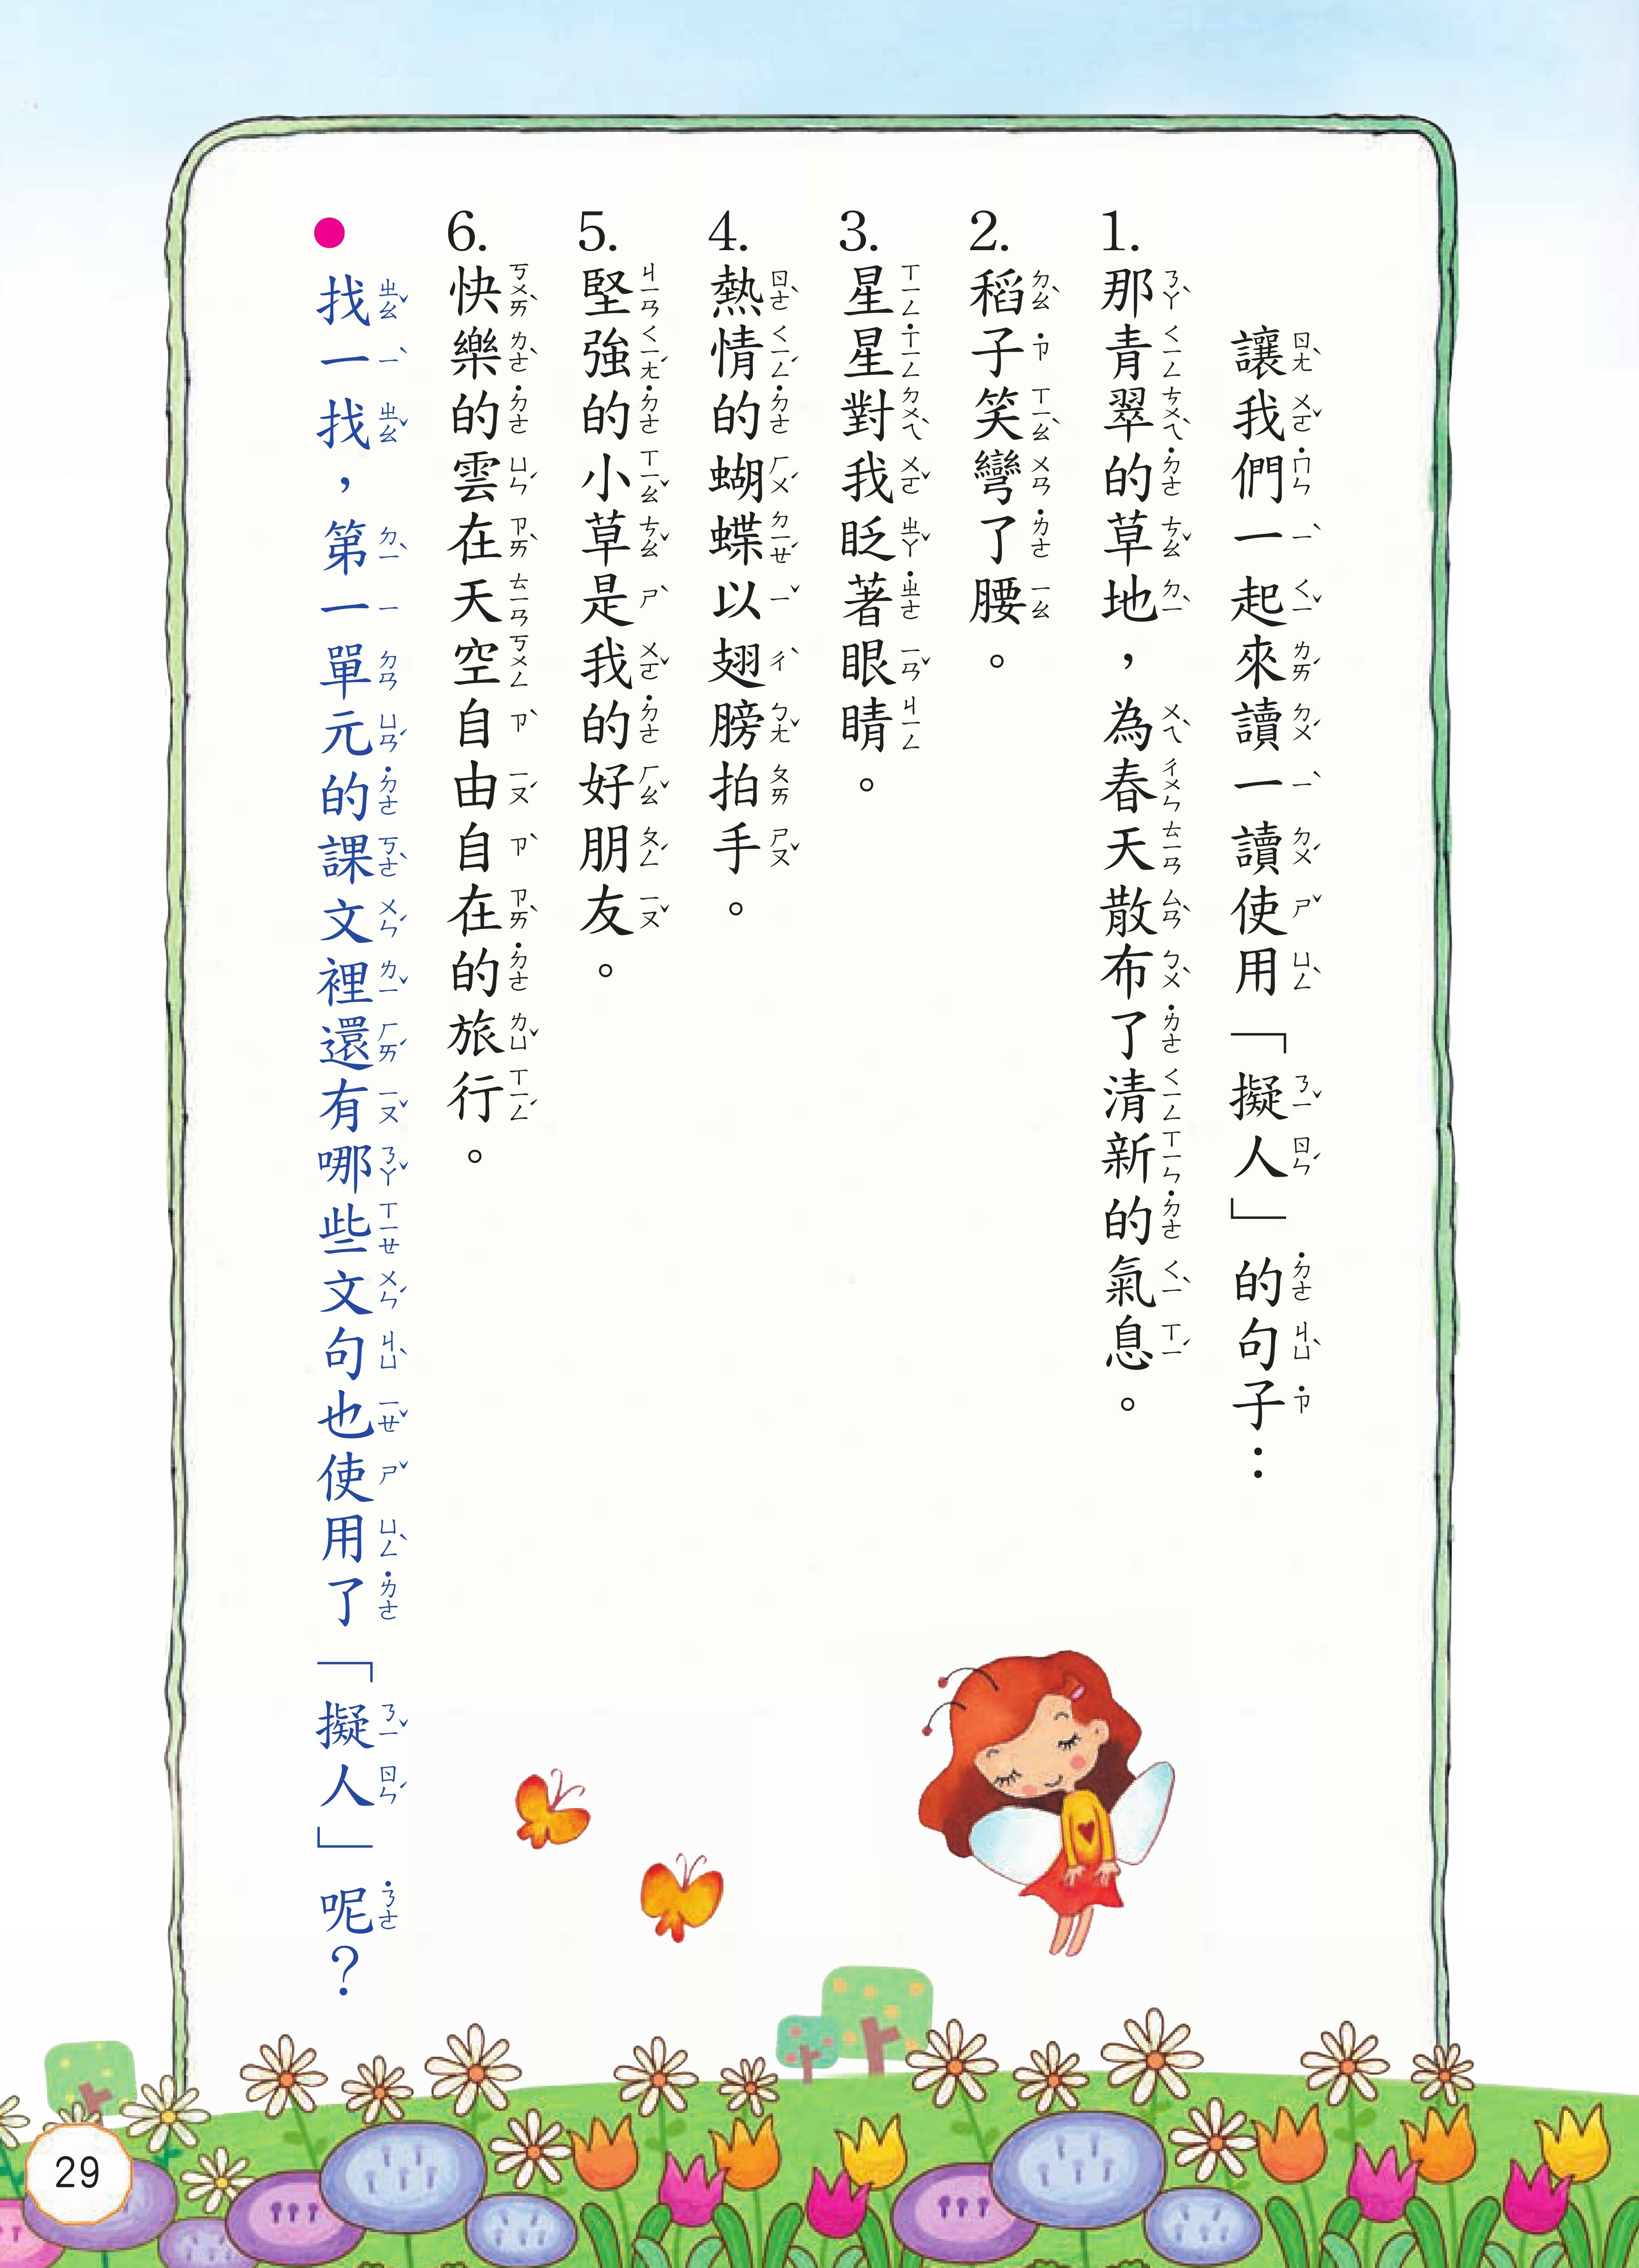 讓我們一起來讀一讀使用「擬人」的句子：
1. 那青翠的草地，為春天散布了清新的氣息。
2. 稻子笑彎了腰。
3. 星星對我眨著眼睛。
4. 熱情的蝴蝶以翅膀拍手。
5. 堅強的小草是我的好朋友。
6. 快樂的雲在天空自由自在的旅行。
● 找一找，第一單元的課文裡還有哪些文句也使用了「擬人」呢？
29